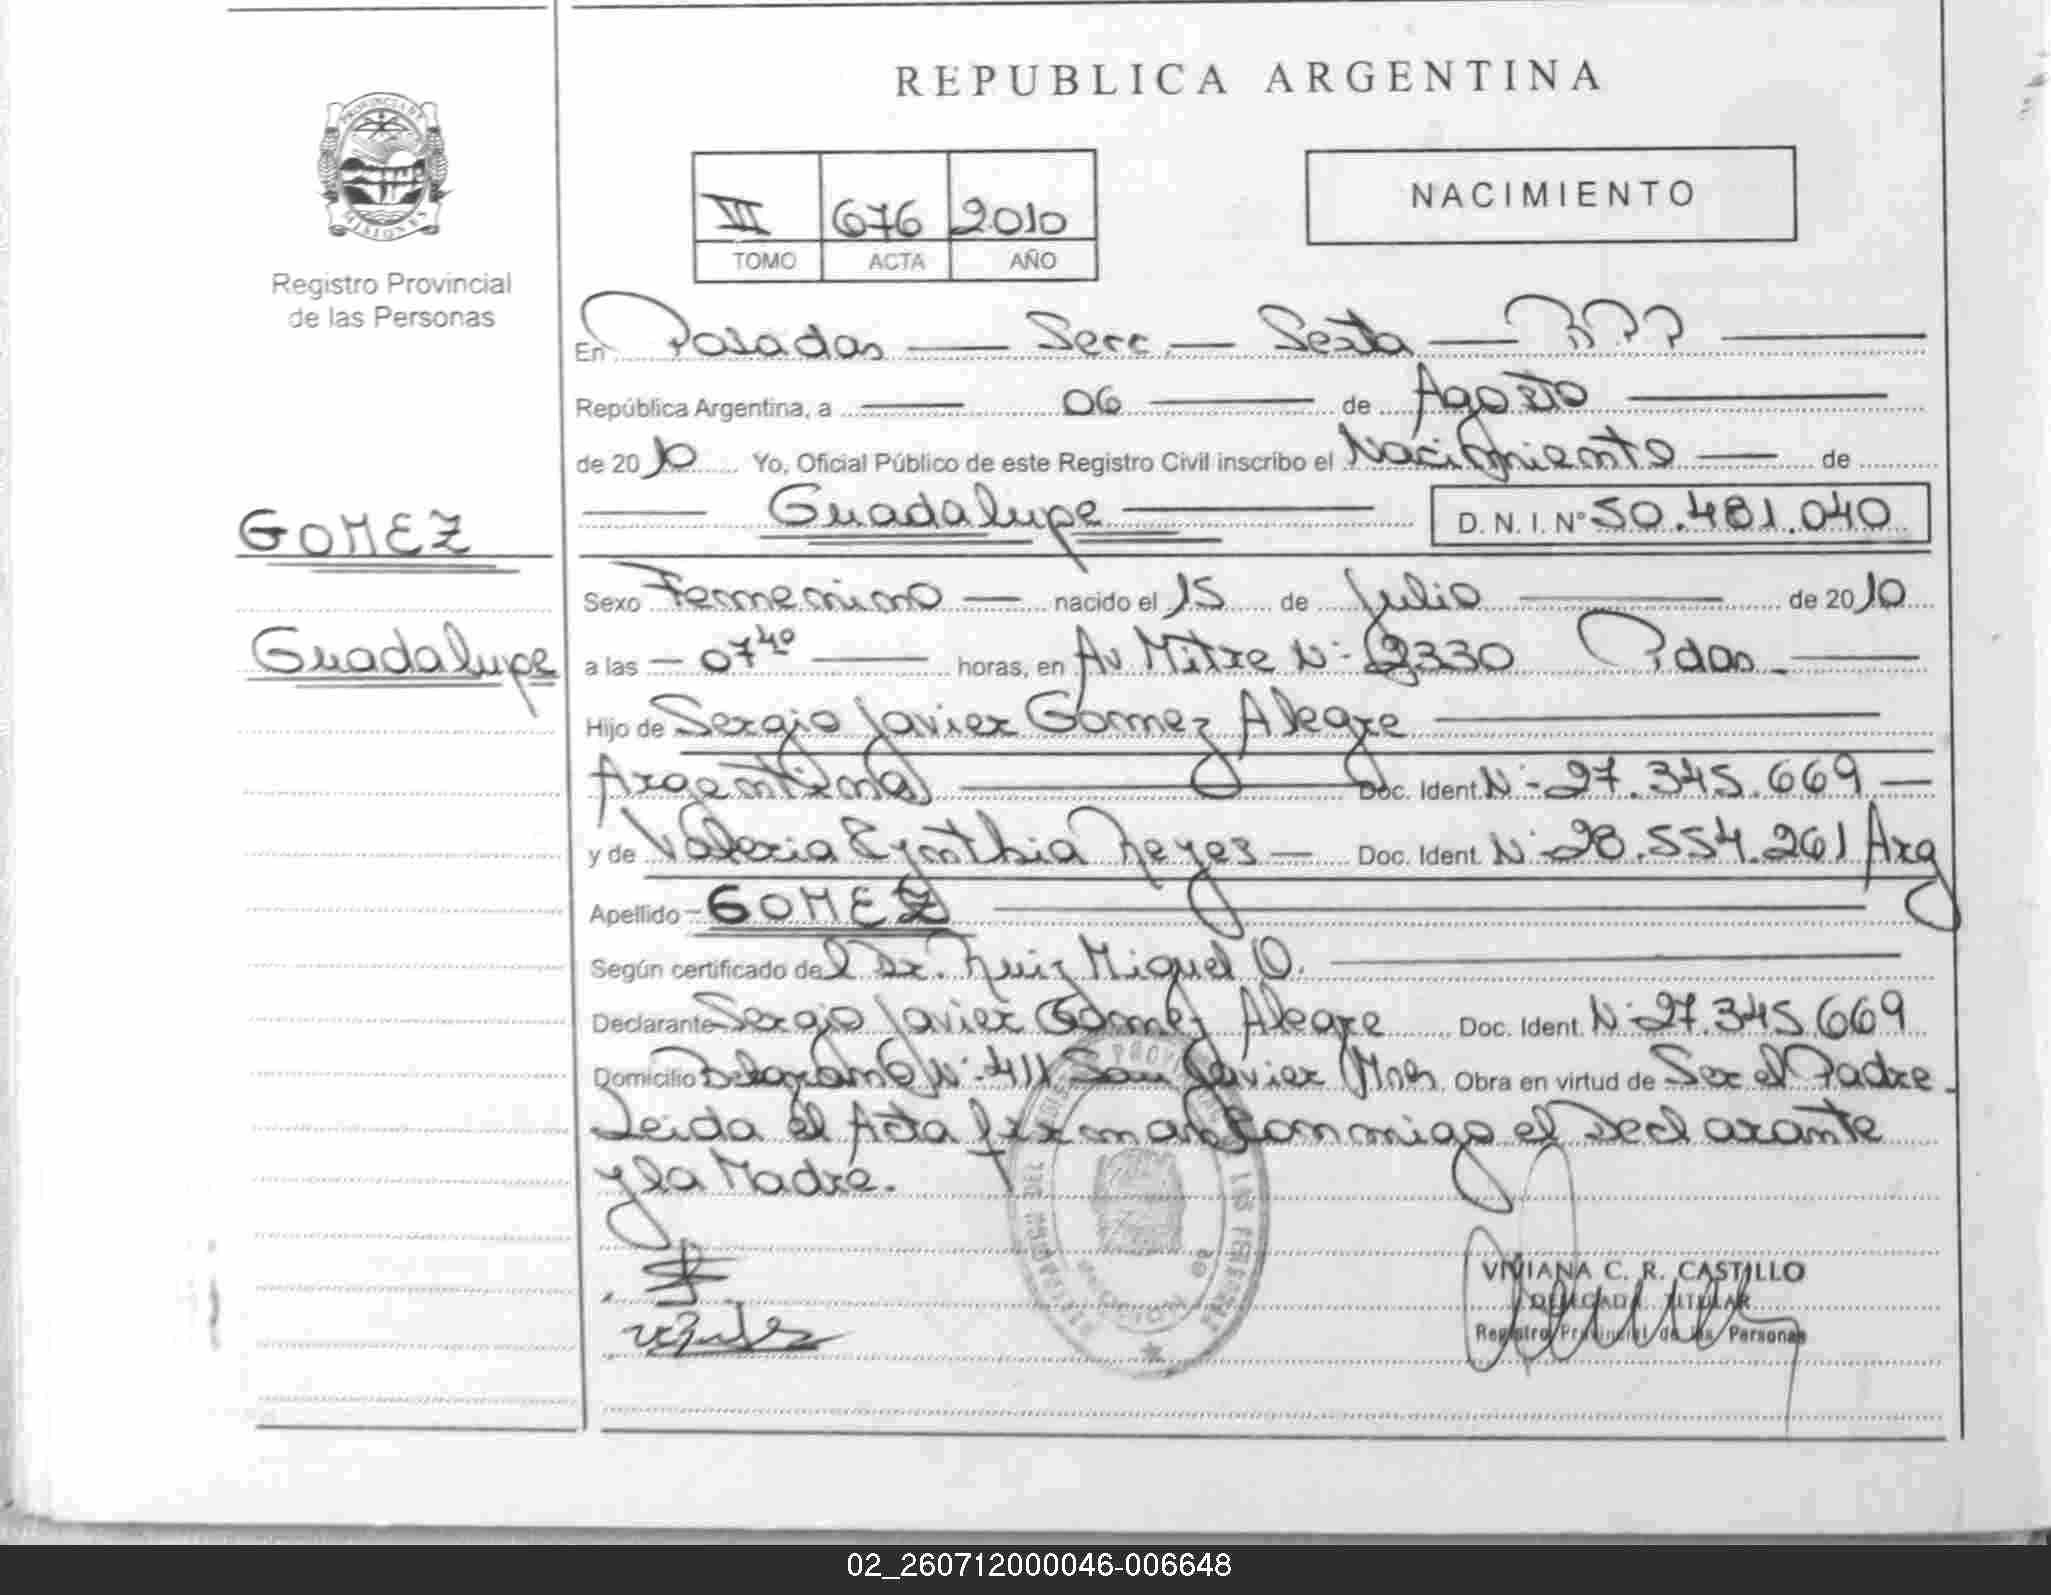 REPUBLICA ARGENTINA
PROVINCIA DE
MISIONES
Registro Provincial
de las Personas
VII 676 2010
TOMO ACTA AÑO
NACIMIENTO
En Posadas — Secc. — Sexta — RPP
República Argentina, a — 06 — de Agosto
de 2010 Yo, Oficial Público de este Registro Civil inscribo el Nacimiento — de
GOMEZ
Guadalupe
Guadalupe D. N. I. N° 50.481.040
Sexo Femenino — nacido el 15 de Julio — de 2010
a las — 07 40 — horas, en Av Mitre N° 2330 Pdas. —
Hijo de Sergio Javier Gomez Alegre
Argentina — Doc. Ident. N° 27.345.669 —
y de Valeria Cynthia Reyes — Doc. Ident. N° 28.554.261 Arg
Apellido - GOMEZ
Según certificado del Dr. Ruiz Miguel O.
Declarante Sergio Javier Gomez Alegre Doc. Ident. N° 27.345.669
Domicilio Belgrano N° 411 San Javier Mnes. Obra en virtud de Ser el Padre.
Leida el Acta firman conmigo el Declarante
y la Madre.
VIVIANA C. R. CASTILLO
DELEGADA TITULAR
Registro Provincial de las Personas
02_260712000046-006648